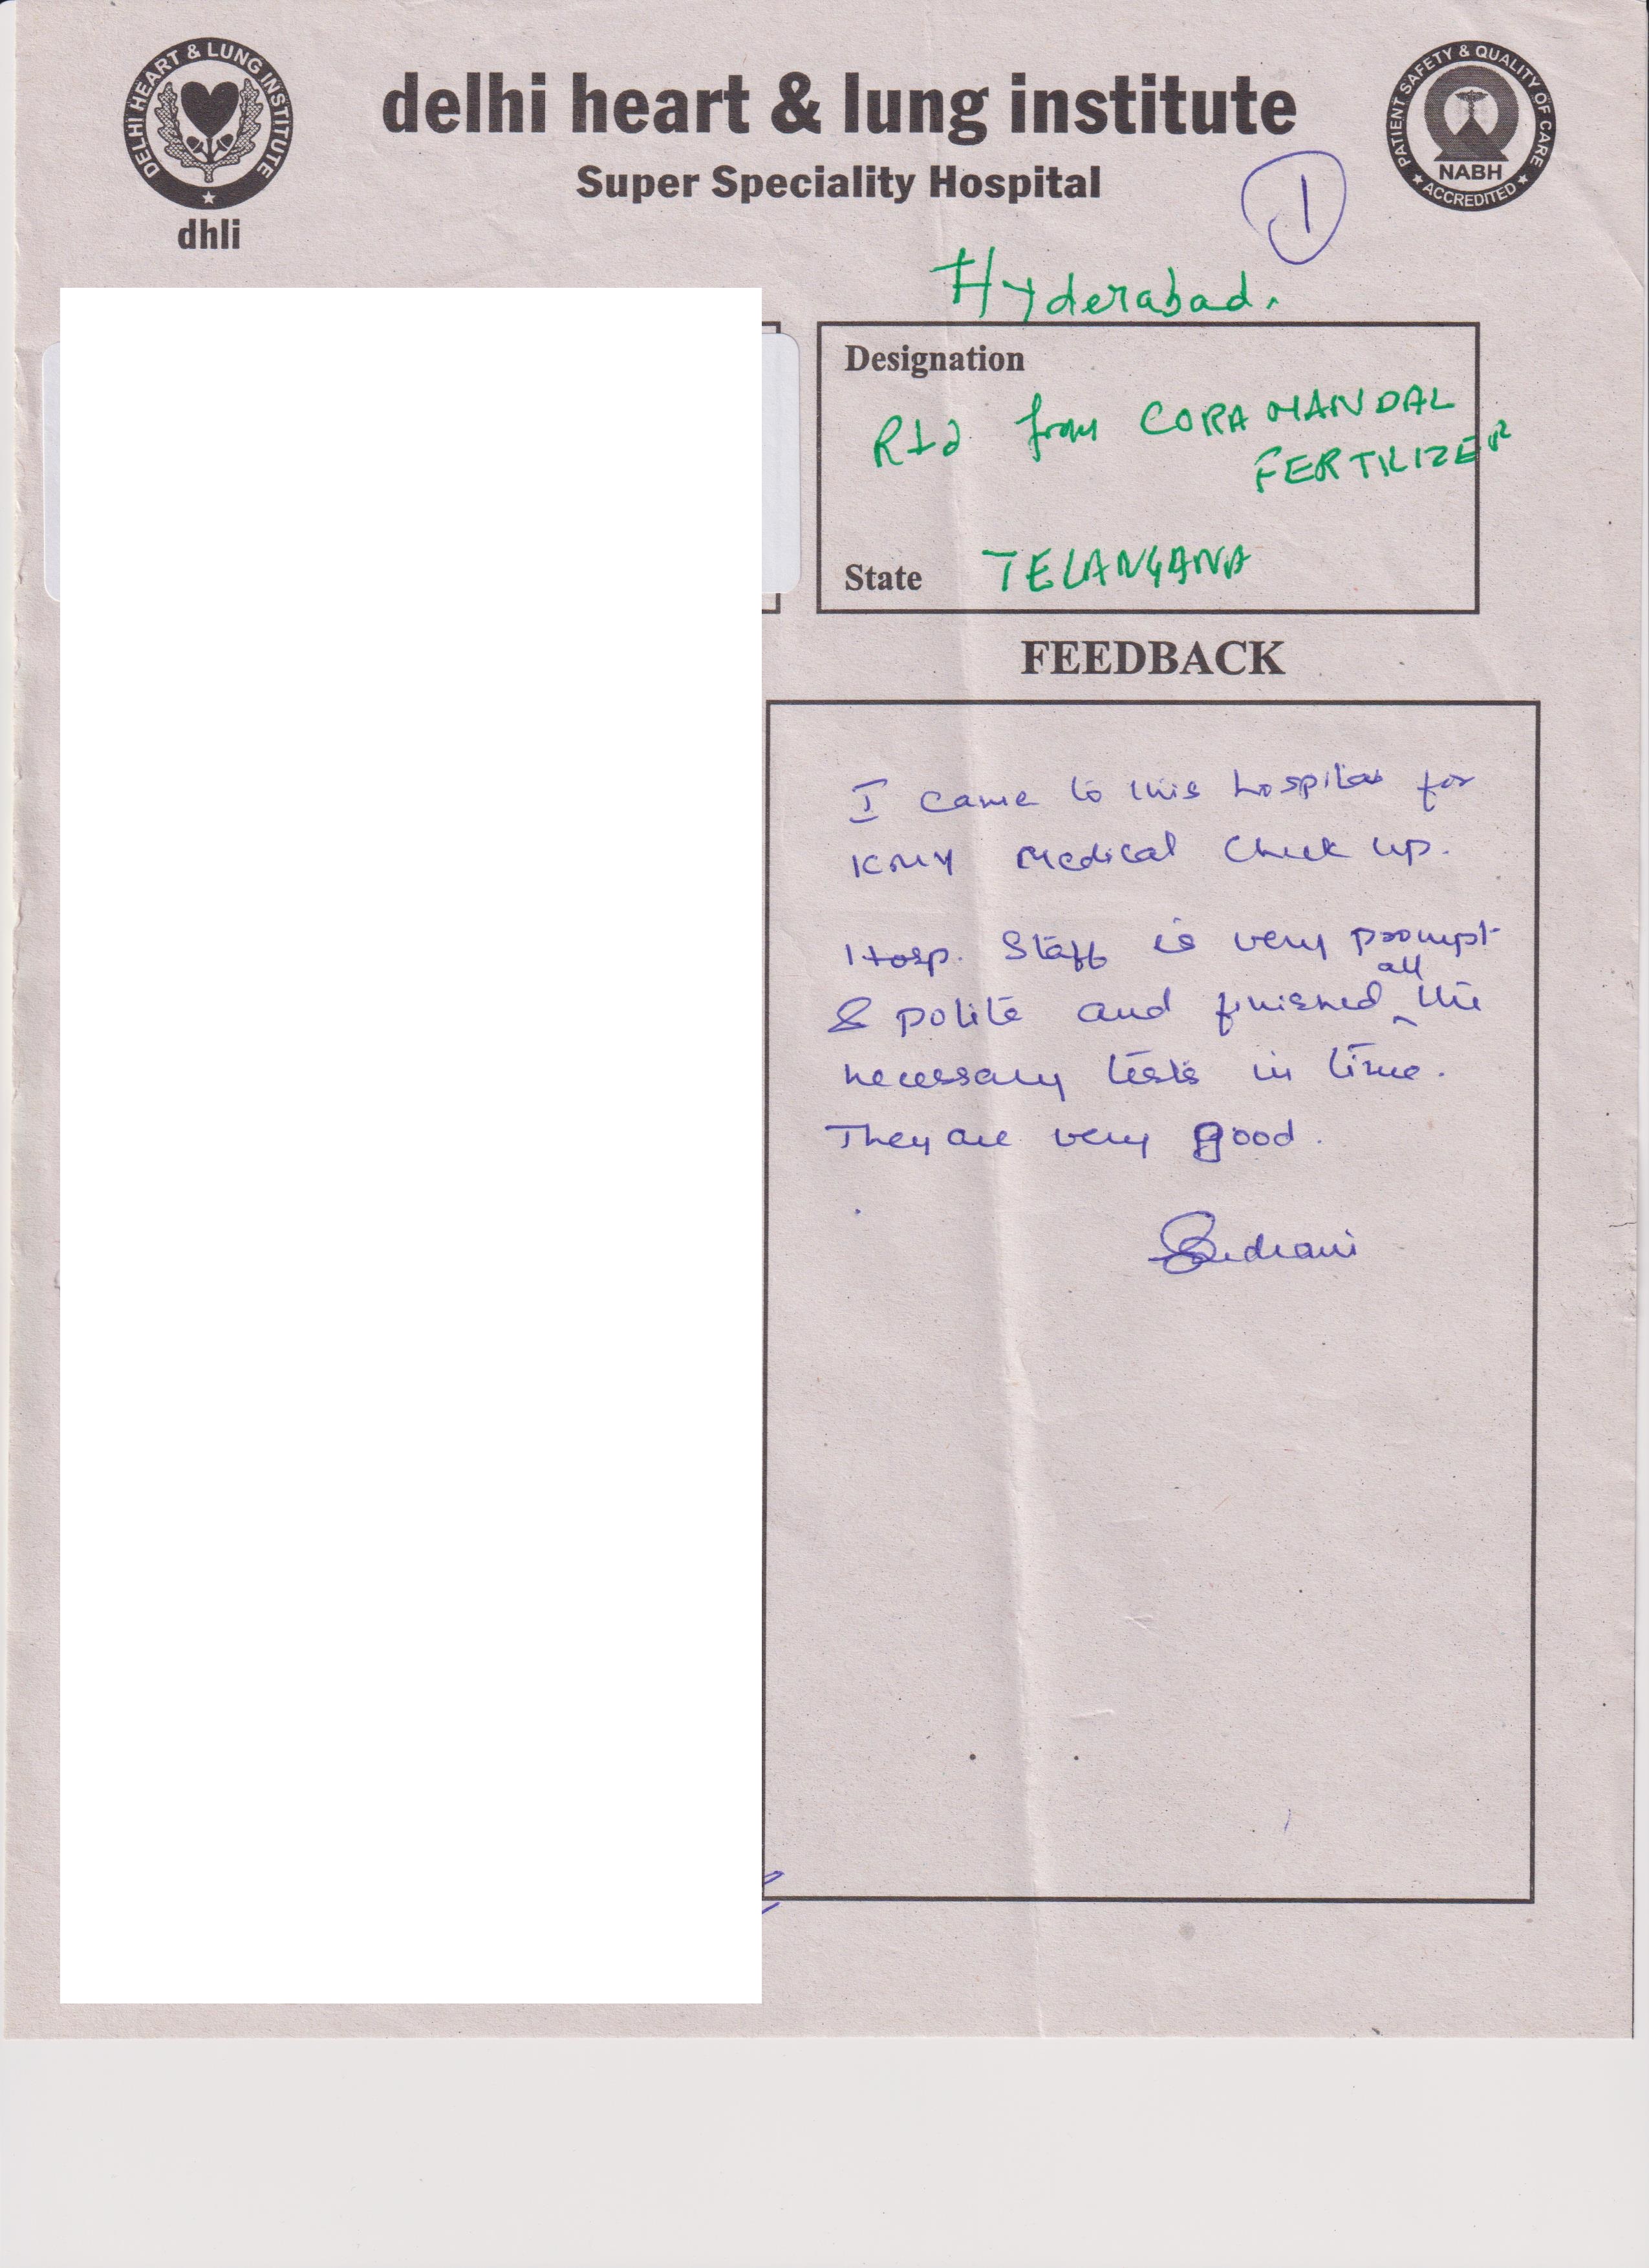 DELHI HEART & LUNG INSTITUTE
dhli
delhi heart & lung institute
Super Speciality Hospital
PATIENT SAFETY & QUALITY OF CARE
NABH
ACCREDITED
1
Hyderabad.
Designation
Rtd from COROMANDAL
FERTILIZER
State TELANGANA
FEEDBACK
I came to this hospital for
KMY Medical Check up.
Hosp. Staff is very prompt
& polite and finished all the
necessary tests in time.
They are very good.